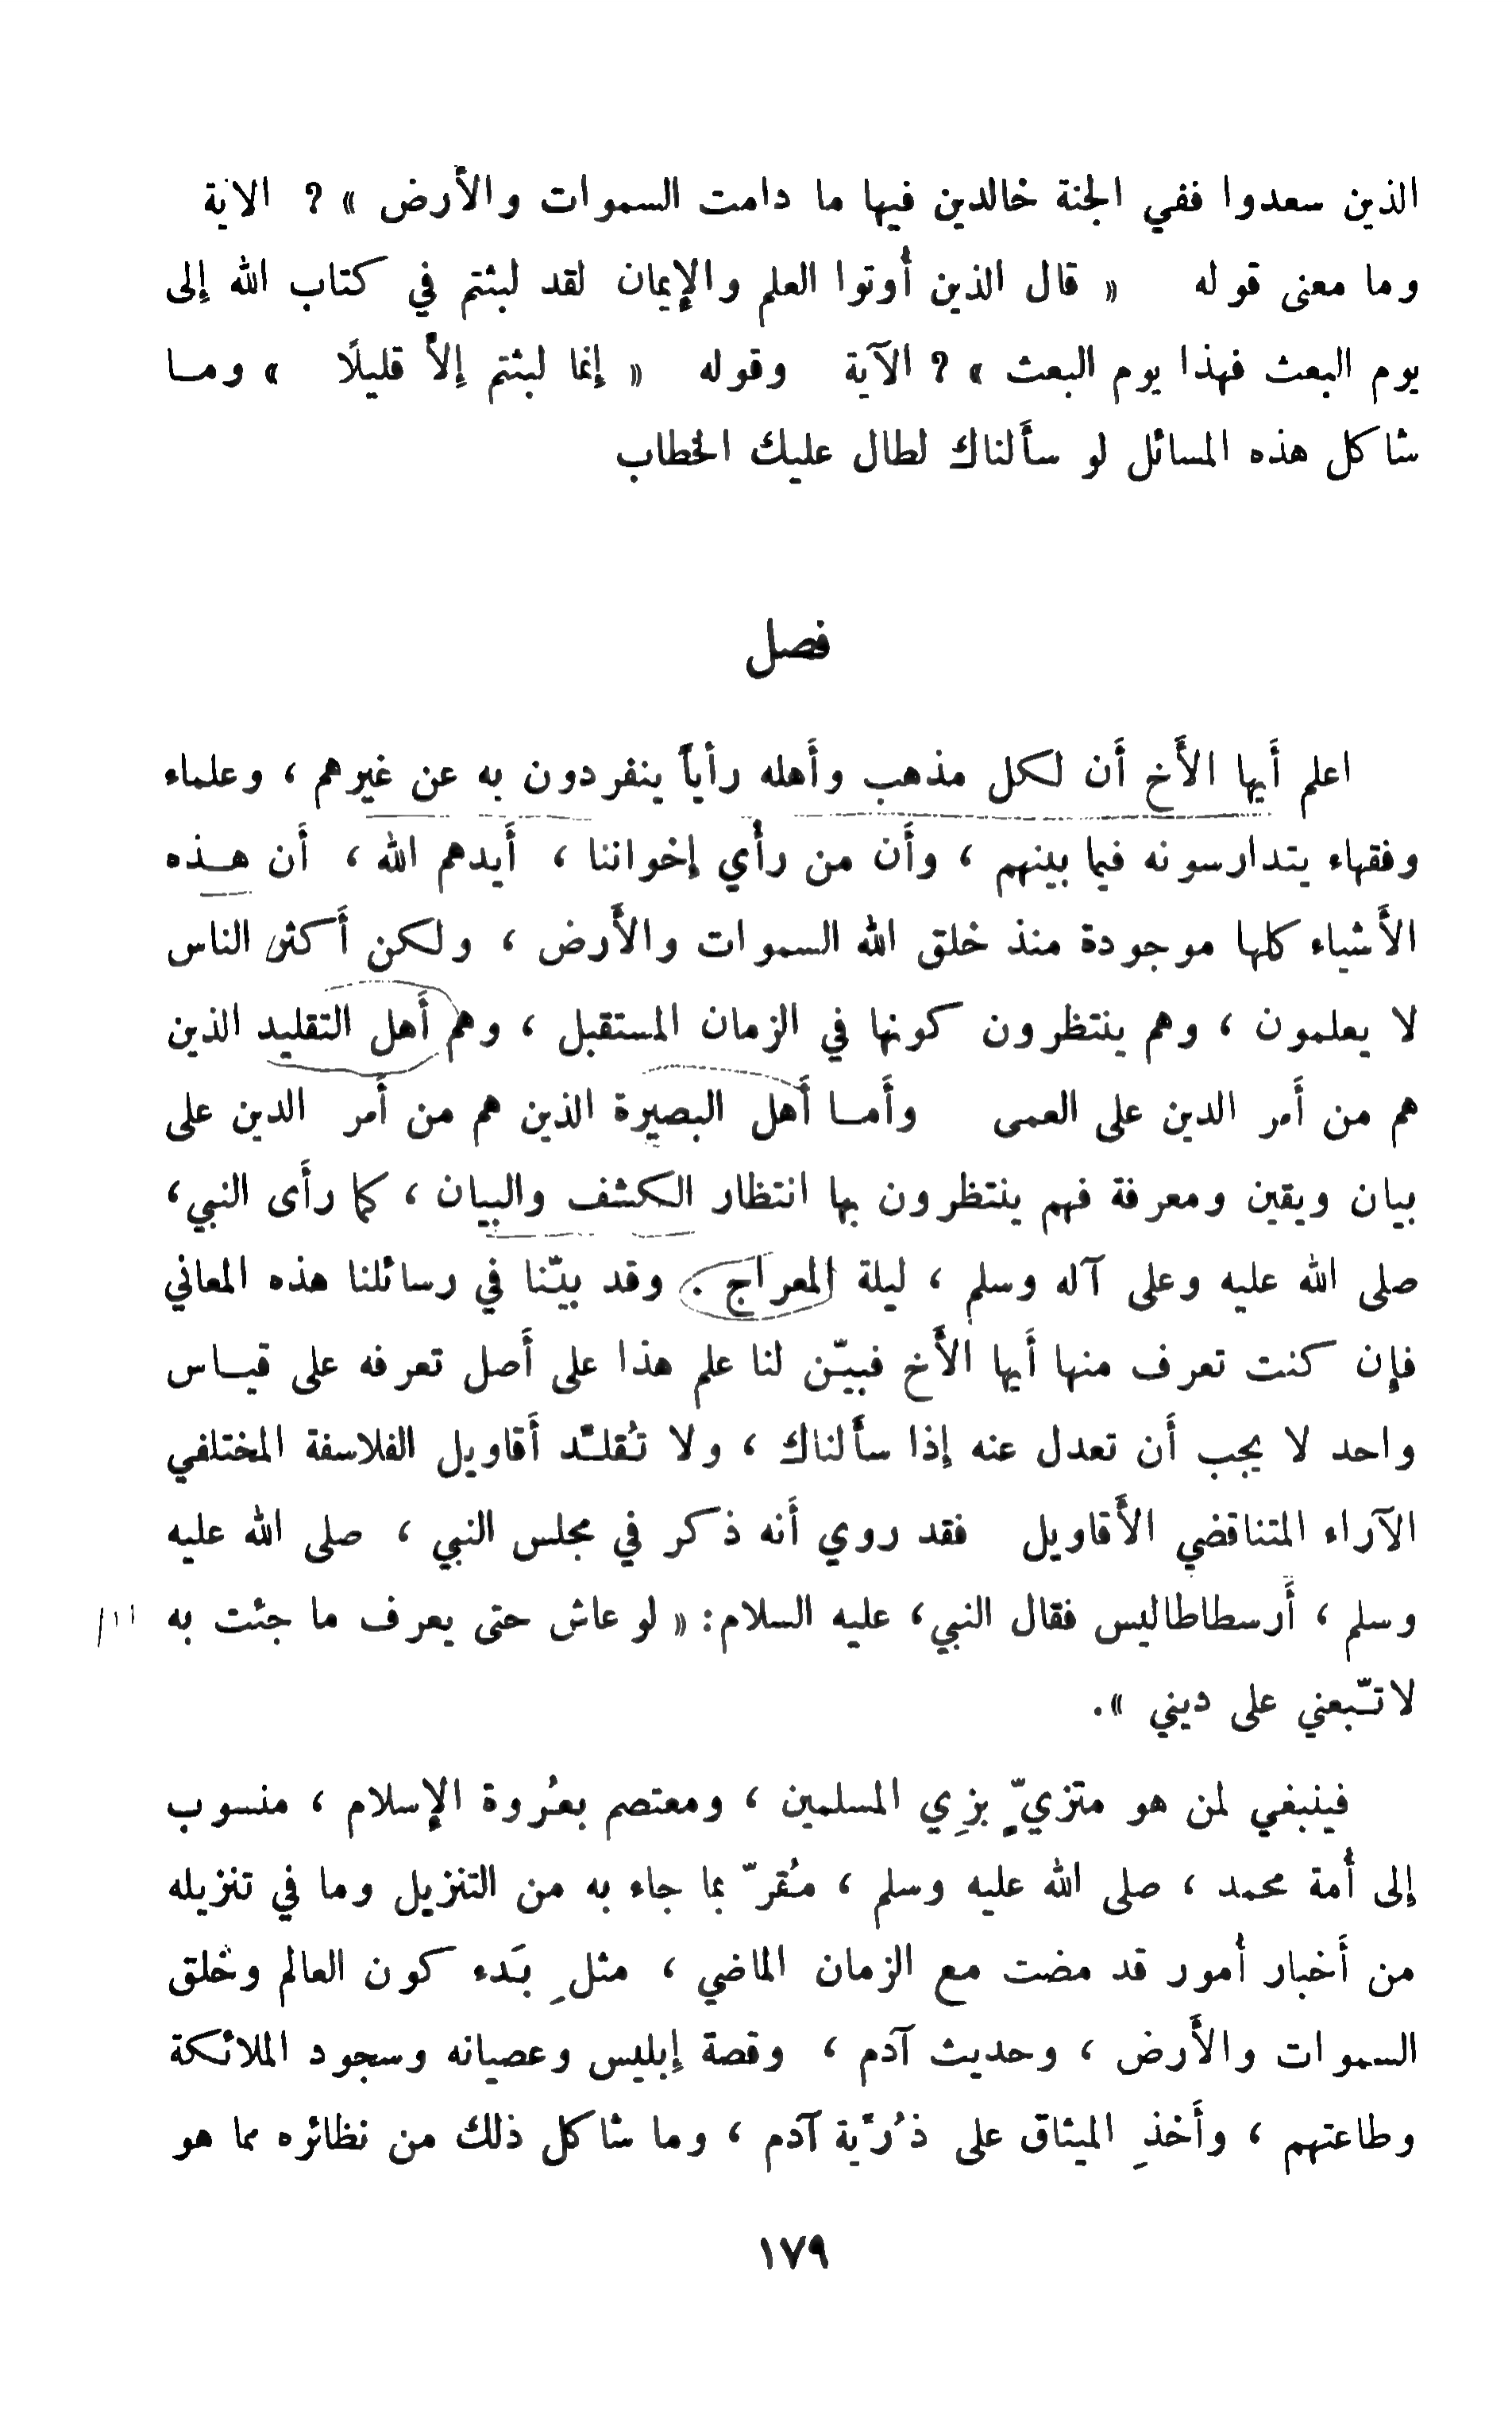 الذين سعدوا ففي الجنة خالدين فيها ما دامت السموات والأرض » ? الاية
وما معنى قوله « قال الذين أُوتوا العلم والإيمان لقد لبثتم في كتاب الله إلى
يوم البعث فهذا يوم البعث » ? الآية وقوله « إنما لبثتم إلاّ قليلًا » وما
شاكل هذه المسائل لو سأَلناك لطال عليك الخطاب
فصل
اعلم أَيها الأَخ أَن لكل مذهب وأَهله رأياً ينفردون به عن غيرهم ، وعلماء
وفقهاء يتدارسونه فيما بينهم ، وأَن من رأْي إخواننا ، أَيدهم الله ، أَن هذه
الأَشياء كلها موجودة منذ خلق الله السموات والأَرض ، ولكن أَكثر الناس
لا يعلمون ، وهم ينتظرون كونها في الزمان المستقبل ، وهم أَهل التقليد الذين
هم من أَمر الدين على العمى وأَما أَهل البصيرة الذين هم من أَمر الدين على
بيان ويقين ومعرفة فهم ينتظرون بها انتظار الكشف والبيان ، كما رأَى النبي،
صلى الله عليه وعلى آله وسلم ، ليلة المعراج . وقد بيّنا في رسائلنا هذه المعاني
فإن كنت تعرف منها أَيها الأَخ فبيّن لنا علم هذا على أَصل تعرفه على قياس
واحد لا يجب أَن تعدل عنه إذا سأَلناك ، ولا تُقلّد أَقاويل الفلاسفة المختلفي
الآراء المتناقضي الأَقاويل فقد روي أَنه ذكر في مجلس النبي ، صلى الله عليه
وسلم ، أَرسطاطاليس فقال النبي، عليه السلام: « لو عاش حتى يعرف ما جئت به
لاتّبعني على ديني ».
فينبغي لمن هو متزيٍّ بزِي المسلمين ، ومعتصم بعُروة الإسلام ، منسوب
إلى أُمة محمد ، صلى الله عليه وسلم ، مُقرّ بما جاء به من التنزيل وما في تنزيله
من أَخبار أُمور قد مضت مع الزمان الماضي ، مثلِ بَدء كون العالم وخَلق
السموات والأَرض ، وحديث آدم ، وقصة إبليس وعصيانه وسجود الملائكة
وطاعتهم ، وأَخذِ الميثاق على ذُرّية آدم ، وما شاكل ذلك من نظائره مما هو
١٧٩